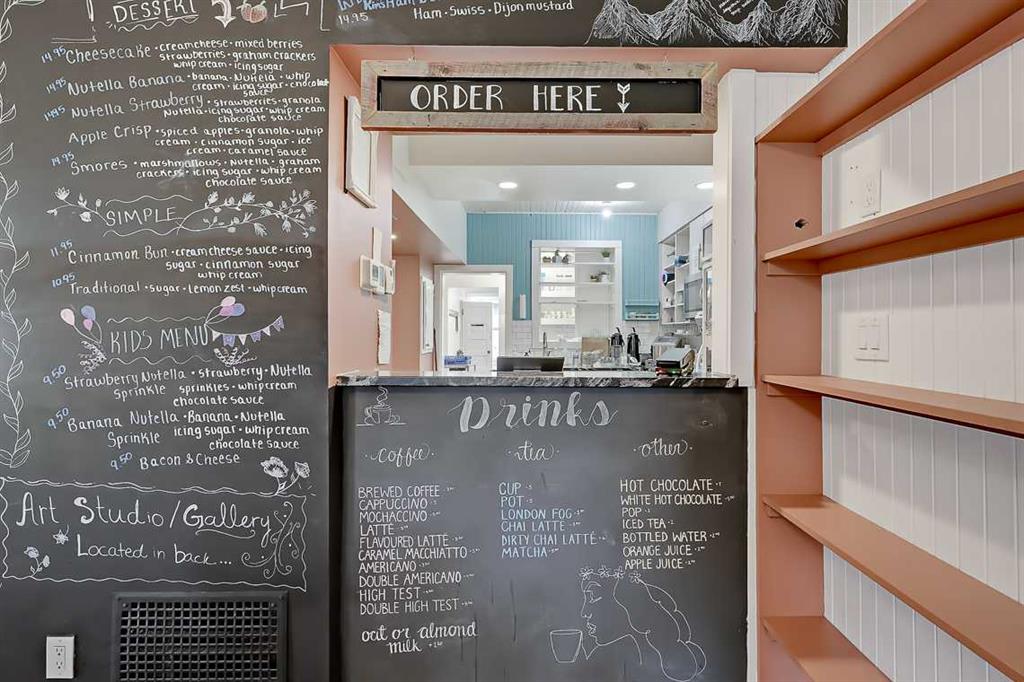 DESSERT
14.95 Cheesecake • creamcheese • mixed berries
strawberries • graham crackers
whip cream • icing sugar
14.95 Nutella Banana • banana • Nutella • whip
cream • icing sugar • chocolate
sauce
14.95 Nutella Strawberry • strawberries • granola
Nutella • icing sugar • whip cream
chocolate sauce
Apple Crisp • spiced apples • granola • whip
cream • cinnamon sugar • ice
cream • caramel sauce
14.95 Smores • marshmallows • Nutella • graham
crackers • icing sugar • whip cream
chocolate sauce
SIMPLE
11.95 Cinnamon Bun • creamcheese sauce • icing
sugar • cinnamon sugar
whip cream
10.95 Traditional • sugar • lemon zest • whipcream
KIDS MENU
9.50 Strawberry Nutella • strawberry • Nutella
sprinkles • whipcream
chocolate sauce
9.50 Banana Nutella • Banana • Nutella
Sprinkle icing sugar • whipcream
chocolate sauce
9.50 Bacon & Cheese
Art Studio/Gallery
Located in back...
14.95
Ham • Swiss • Dijon mustard
ORDER HERE
Drinks
coffee
BREWED COFFEE
CAPPUCCINO
MOCHACCINO
LATTE
FLAVOURED LATTE
CARAMEL MACCHIATTO
AMERICANO
DOUBLE AMERICANO
HIGH TEST
DOUBLE HIGH TEST
oat or almond
milk
tea
CUP
POT
LONDON FOG
CHAI LATTE
DIRTY CHAI LATTE
MATCHA
other
HOT CHOCOLATE
WHITE HOT CHOCOLATE
POP
ICED TEA
BOTTLED WATER
ORANGE JUICE
APPLE JUICE